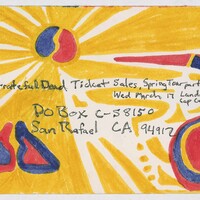 Grateful Dead Ticket Sales, Spring Tour part
Wed March 17 Land
Cap C
PO Box C-S8150
San Rafael CA 94912